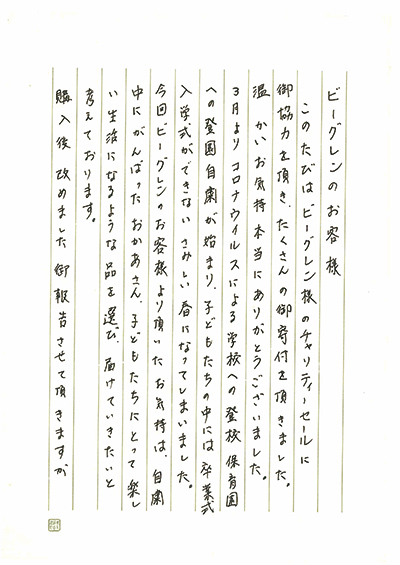 ビーグレンのお客様
このたびはビーグレン様のチャリティーセールに
御協力を頂き、たくさんの御寄付を頂きました。
温かいお気持本当にありがとうございました。
3月よりコロナウイルスによる学校への登校保育園
への登園自粛が始まり、子どもたちの中には卒業式
入学式ができないさみしい春になってしまいました。
今回ビーグレンのお客様より頂いたお気持は、自粛
中にがんばったおかあさん、子どもたちにとって楽し
い生活になるような品を選び、届けていきたいと
考えております。
購入後改めました御報告させて頂きますが